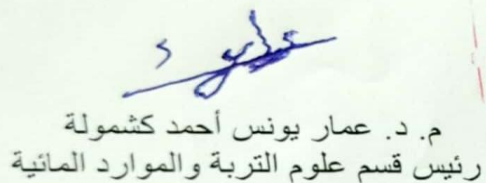 م. د. عمار يونس أحمد كشمولة
رئيس قسم علوم التربة والموارد المائية